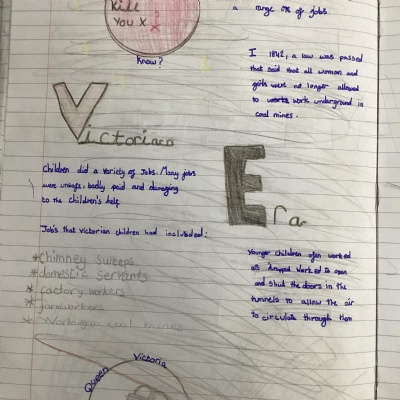 Kill
You X ?
a range of jobs
Know?
I 1842, a law was passed
that said that all woman and
girls were no longer allowed
to work underground in
coal mines.
Victorian
Era
Children did a variety of Jobs. Many jobs
were unsafe, badly paid and damaging
to the children's help.
Job's that victorian children had included:
*chimney sweeps
*domestic servants
*factory workers
*farmworkers
*Working coal mines
Younger children ofen worked
as trapped worked to open
and shut the doors in the
tunnels to allow the air
to circulate through them
Queen Victoria